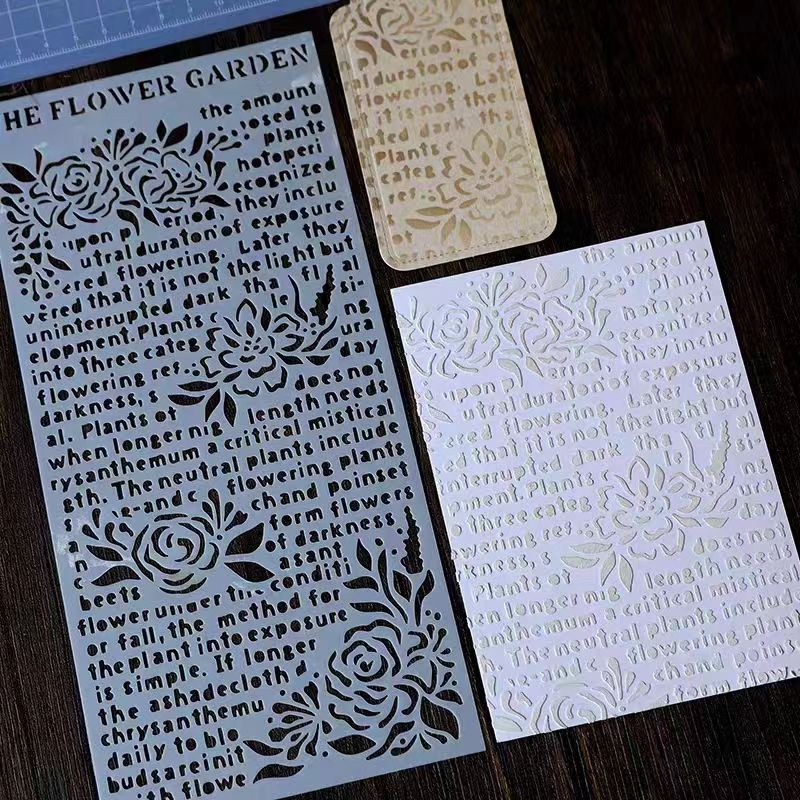 HE FLOWER GARDEN
the amount
osed to
plants
hotoperi
ecognized
they inclu
upon p eriod,
utral duraton of exposure
ered flowering. Later they
vered that it is not the light but
uninterrupted dark tha fl al
elopment. Plants c le si-
into three categ ura
flowering res ing
darkness, s day
al. Plants of does not
when longer nig length needs
rysanthemum a critical mistical
gth. The neutral plants include
s e-and c flowering plants
n chand poinset
c form flowers
beets of darkness,
asant
flower under the conditi
or fall, the method for
the plant into exposure
is simple. If longer
the ashadecloth d
chrysanthemu
daily to blo
buds are init
with flowe
eriod, the
duraton of e
flowering. Late
it is not the l
nted dark tha
Plants c
categ
of
the amount
osed to
plants
hotoperi
ecognized
they inclu
upon p eriod,
utral duraton of exposure
ered flowering. Later they
ed that it is not the light but
interrupted dark tha fl al
pment. Plants c si-
three categ ura
wering res day
kness, does not
Plants of length needs
en longer nig
anthemum a critical mistical
h. The neutral plants include
e-and c flowering plant
chand poinse
form flow